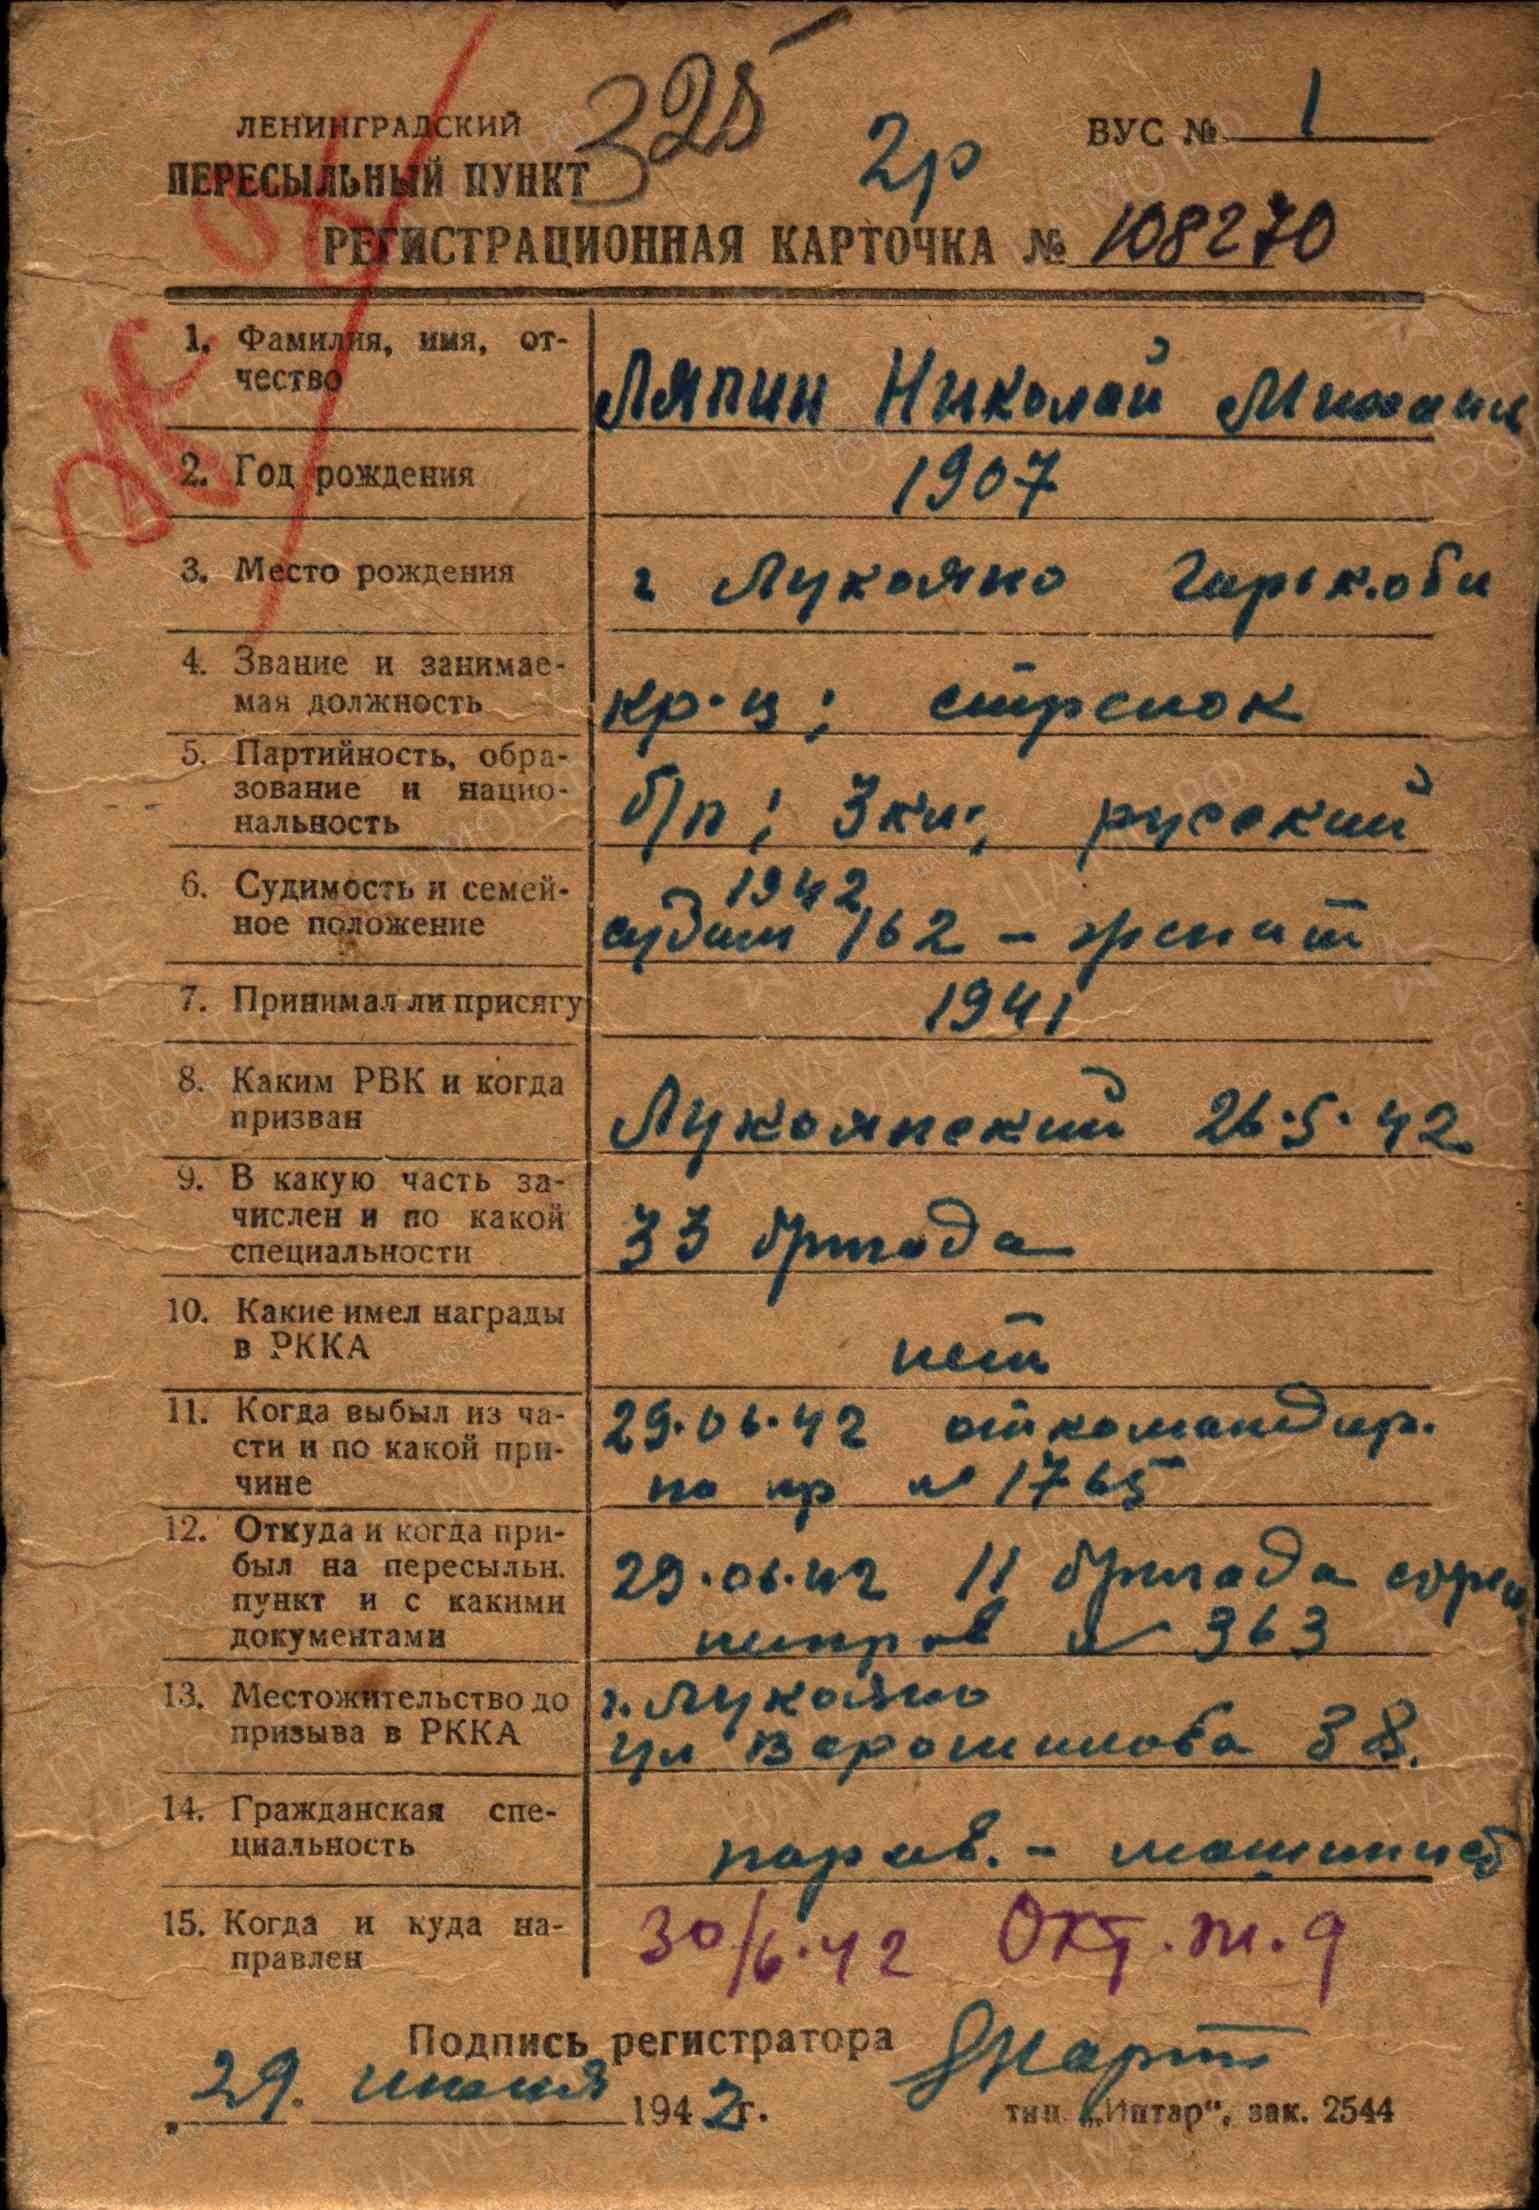 325
ЛЕНИНГРАДСКИЙ
ПЕРЕСЫЛЬНЫЙ ПУНКТ
2р
ВУС № 1
РЕГИСТРАЦИОННАЯ КАРТОЧКА № 108270
1. Фамилия, имя, от-
чество
Ляпин Николай
2. Год рождения
1907
3. Место рождения
г Лукояно Горьк.обл
4. Звание и занимае-
мая должность
кр-ц; стрелок
5. Партийность, обра-
зование и нацио-
нальность
б/п; 3кл; русский
6. Судимость и семей-
ное положение
1942
судим 162 - женат
7. Принимал ли присягу
1941
8. Каким РВК и когда
призван
Лукоянский 26.5.42
9. В какую часть за-
числен и по какой
специальности
33 бригада
10. Какие имел награды
в РККА
нет
11. Когда выбыл из ча-
сти и по какой при-
чине
29.06.42 откомандир.
по пр № 1765
12. Откуда и когда при-
был на пересыльн.
пункт и с какими
документами
29.06.42 11 бригада
№ 363
13. Местожительство до
призыва в РККА
г. Лукояно
ул Ворошилова 38.
14. Гражданская спе-
циальность
паров. - машинист
15. Когда и куда на-
правлен
30/6.42 Окт.ж.д
Подпись регистратора
29. июня 1942г.
тип. „Интар“, зак. 2544